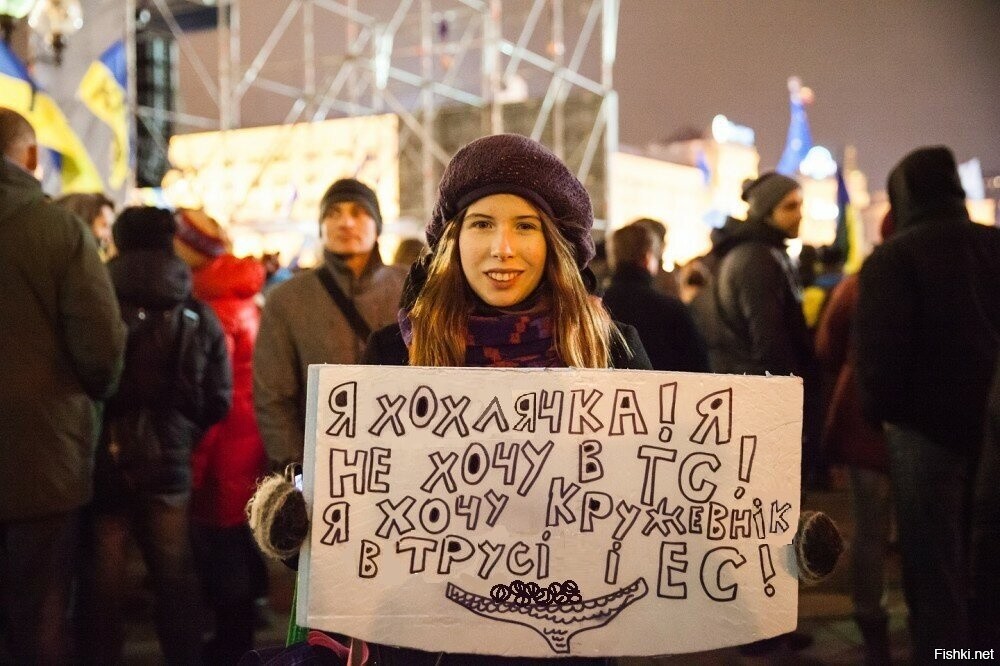 Я ХОХЛЯЧКА! Я
НЕ ХОЧУ В ТС!
Я ХОЧУ КРУЖЕВНІК
В ТРУСІ І ЕС!
Fishki.net